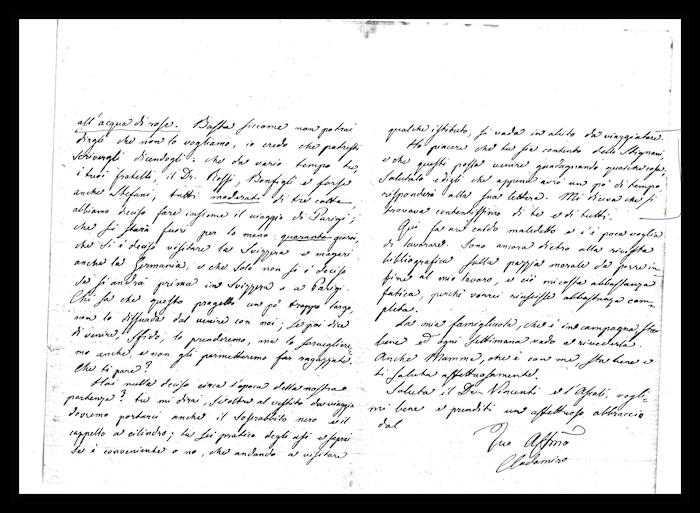 all'acqua di rose. Basta siccome non potrai
dirgli che non lo vogliamo, io credo che potresti
scrivergli dicendogli: che da vario tempo te,
i tuoi fratelli, il Dr. Rossi, Bonfigli e forse
anche Stefani, tutti moderati di tre cotte,
abbiamo deciso fare insieme il viaggio di Parigi;
che si starà fuori per lo meno quaranta giorni,
che si è deciso visitare la Svizzera e magari
anche la Germania, e che solo non si è deciso
se si andrà prima in Svizzera o a Parigi.
Chi sa che questo progetto un pò troppo largo,
non lo dissuada dal venire con noi; se poi dice
di venire, sfido, lo prenderemo, ma lo sorveglieremo
mo anche, e non gli permetteremo far ragazzate.
Che ti pare?
Hai nulla deciso circa l'epoca della nostra
partenza? tu mi dirai, se oltre al vestito da viaggio
dovremo portarci anche il soprabito nero e il
cappello a cilindro; tu sei pratico degli usi e saprai
se è conveniente o no, che andando a visitare
qualche istituto, si vada in abito da viaggiatore.
Ho piacere che tu sia contento dello
e che questi possa venire guadagnando qualche cosa.
Salutalo e digli che appena avrò un pò di tempo,
risponderò alla sua lettera. Mi diceva che si
trovava contentissimo di te e di tutti.
Qui fa un caldo maledetto e c'è poca voglia
di lavorare. Sono ancora dietro alla rivista
bibliografica sulla pazzia morale da porre in
fine al mio lavoro, e ciò mi costa abbastanza
fatica, perchè vorrei riuscisse abbastanza com-
pleta.
La mia famigliuola, che è in campagna, sta
bene ed ogni settimana vado a rivederla.
Anche Mamma, che è con me sta bene e
ti saluta affettuosamente.
Saluta il De-Vincenti e l'Ascoli, vogli-
mi bene e prenditi un affettuoso abbraccio
dal
Tuo Affmo
Clodomiro